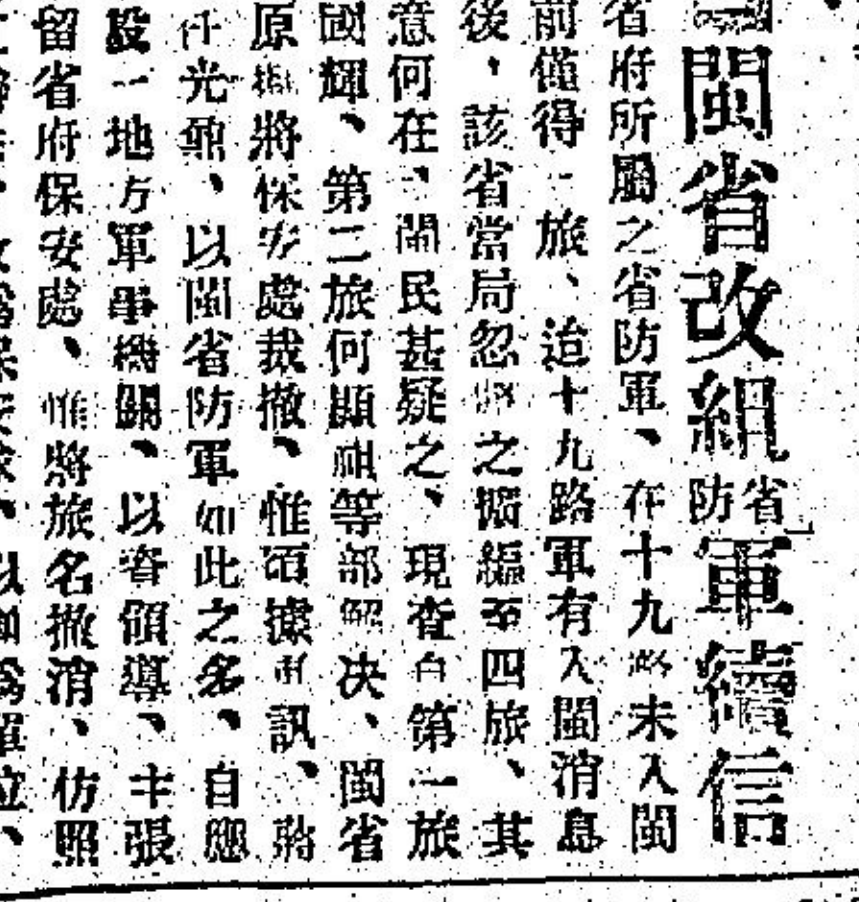 閩省改組省防軍續信
省府所屬之省防軍、在十九路未入閩
前僅得一旅、迨十九路軍有入閩消息
後、該省當局忽將之擴編至四旅、其
意何在、閩民甚疑之、現查自第一旅
國輝、第二旅何顯祖等部解决、閩省
原擬將保安處裁撤、惟頃據電訊、蔣
光鼐、以閩省防軍如此之多、自應
設一地方軍事機關、以資領導、主張
留省府保安處、惟將旅名撤消、仿照
改爲保安隊、以團爲單位、